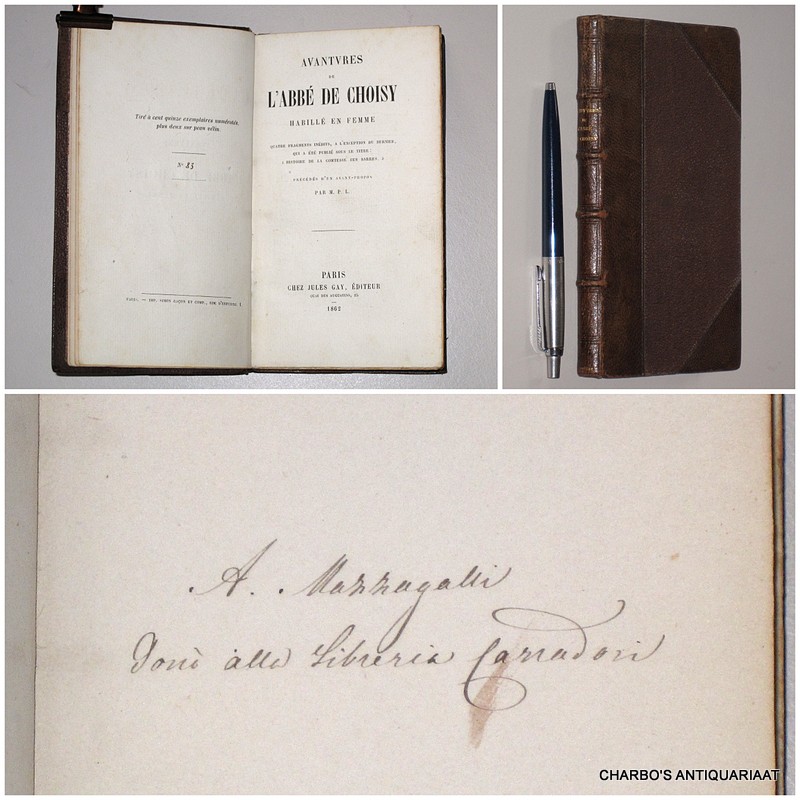 Tiré à cent quinze exemplaires numérotés,
plus deux sur peau vélin.
N° 85
PARIS. — IMP. SIMON RAÇON ET COMP., RUE D'ERFURTH, 1
AVANTVRES
DE
L'ABBÉ DE CHOISY
HABILLÉ EN FEMME
QUATRE FRAGMENTS INÉDITS, A L'EXCEPTION DU DERNIER,
QUI A ÉTÉ PUBLIÉ SOUS LE TITRE :
HISTOIRE DE LA COMTESSE DES BARRES
PRÉCÉDÉS D'UN AVANT-PROPOS
PAR M. P. L.
PARIS
CHEZ JULES GAY, ÉDITEUR
QUAI DES AUGUSTINS,
1862
A. Mazzagalli
Donò alla Libreria Carradori
CHARBO'S ANTIQUARIAAT